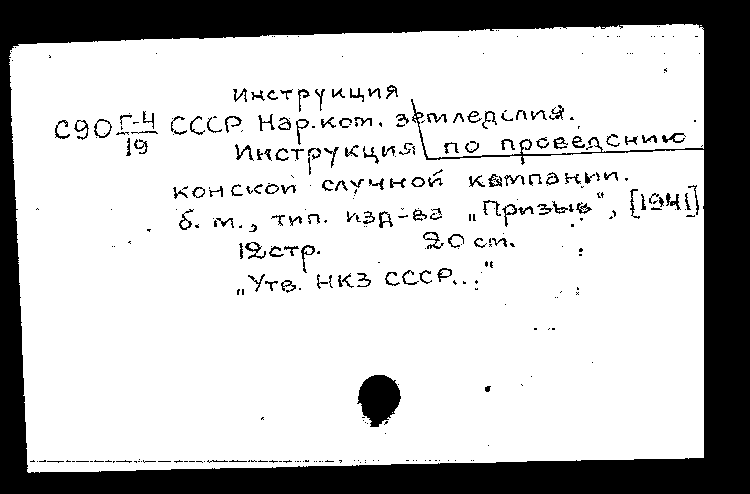 Инструкция
С90 Г-4/19 СССР. Нар.ком. земледелия.
Инструкция по проведению
конской случной кампании.
б. м., тип. изд-ва „Призыв", [1941].
12 стр. 20 см.
„Утв. НКЗ СССР..."